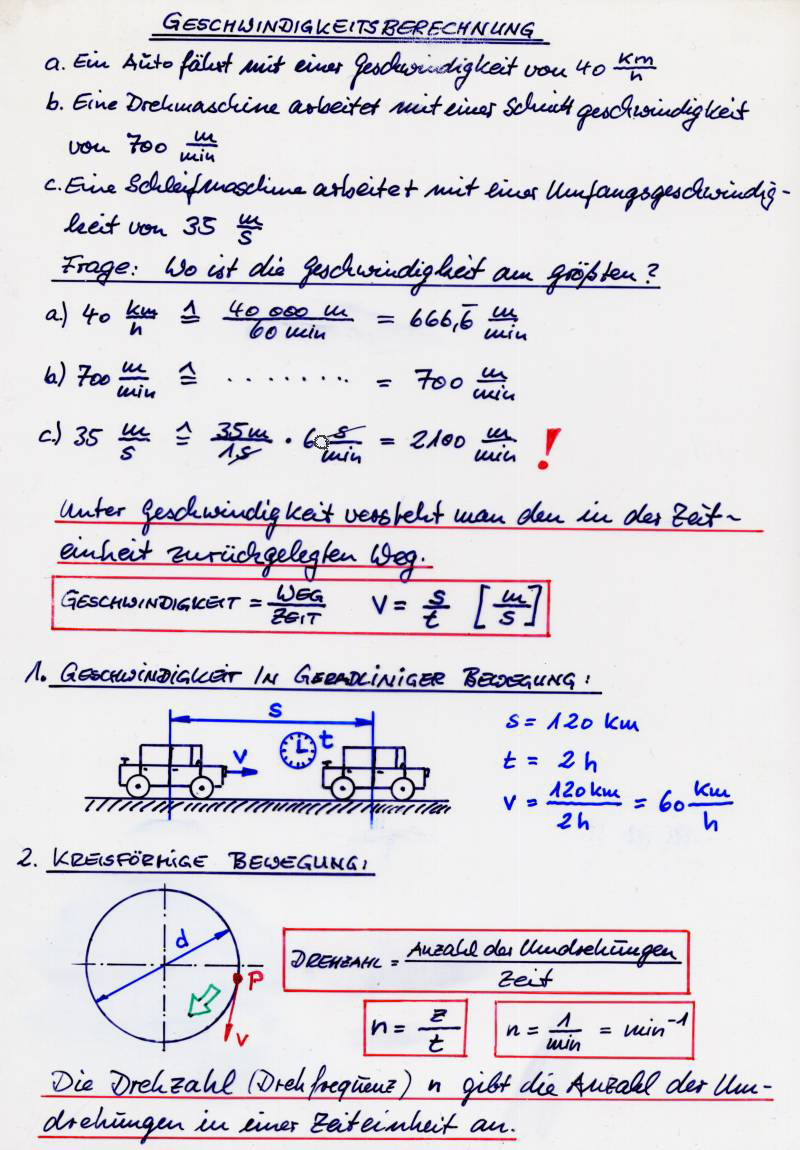 GESCHWINDIGKEITSBERECHNUNG
a. Ein Auto fährt mit einer Geschwindigkeit von 40 km/h
b. Eine Drehmaschine arbeitet mit einer Schnittgeschwindigkeit
von 700 m/min
c. Eine Schleifmaschine arbeitet mit einer Umfangsgeschwindig-
keit von 35 m/s
Frage: Wo ist die Geschwindigkeit am größten?
a.) 40 km/h ≙ 40 000 m / 60 min = 666,6̅ m/min
b.) 700 m/min ≙ ........ = 700 m/min
c.) 35 m/s ≙ 35m/1s · 60 s/min = 2100 m/min !
Unter Geschwindigkeit versteht man den in der Zeit-
einheit zurückgelegten Weg.
GESCHWINDIGKEIT = WEG/ZEIT V = s/t [m/s]
1. GESCHWINDIGKEIT IN GERADLINIGER BEWEGUNG:
s
v
t
s = 120 km
t = 2 h
v = 120 km / 2h = 60 km/h
2. KREISFÖRMIGE BEWEGUNG:
d
P
v
DREHZAHL = Anzahl der Umdrehungen / Zeit
n = z/t
n = 1/min = min⁻¹
Die Drehzahl (Drehfrequenz) n gibt die Anzahl der Um-
drehungen in einer Zeiteinheit an.